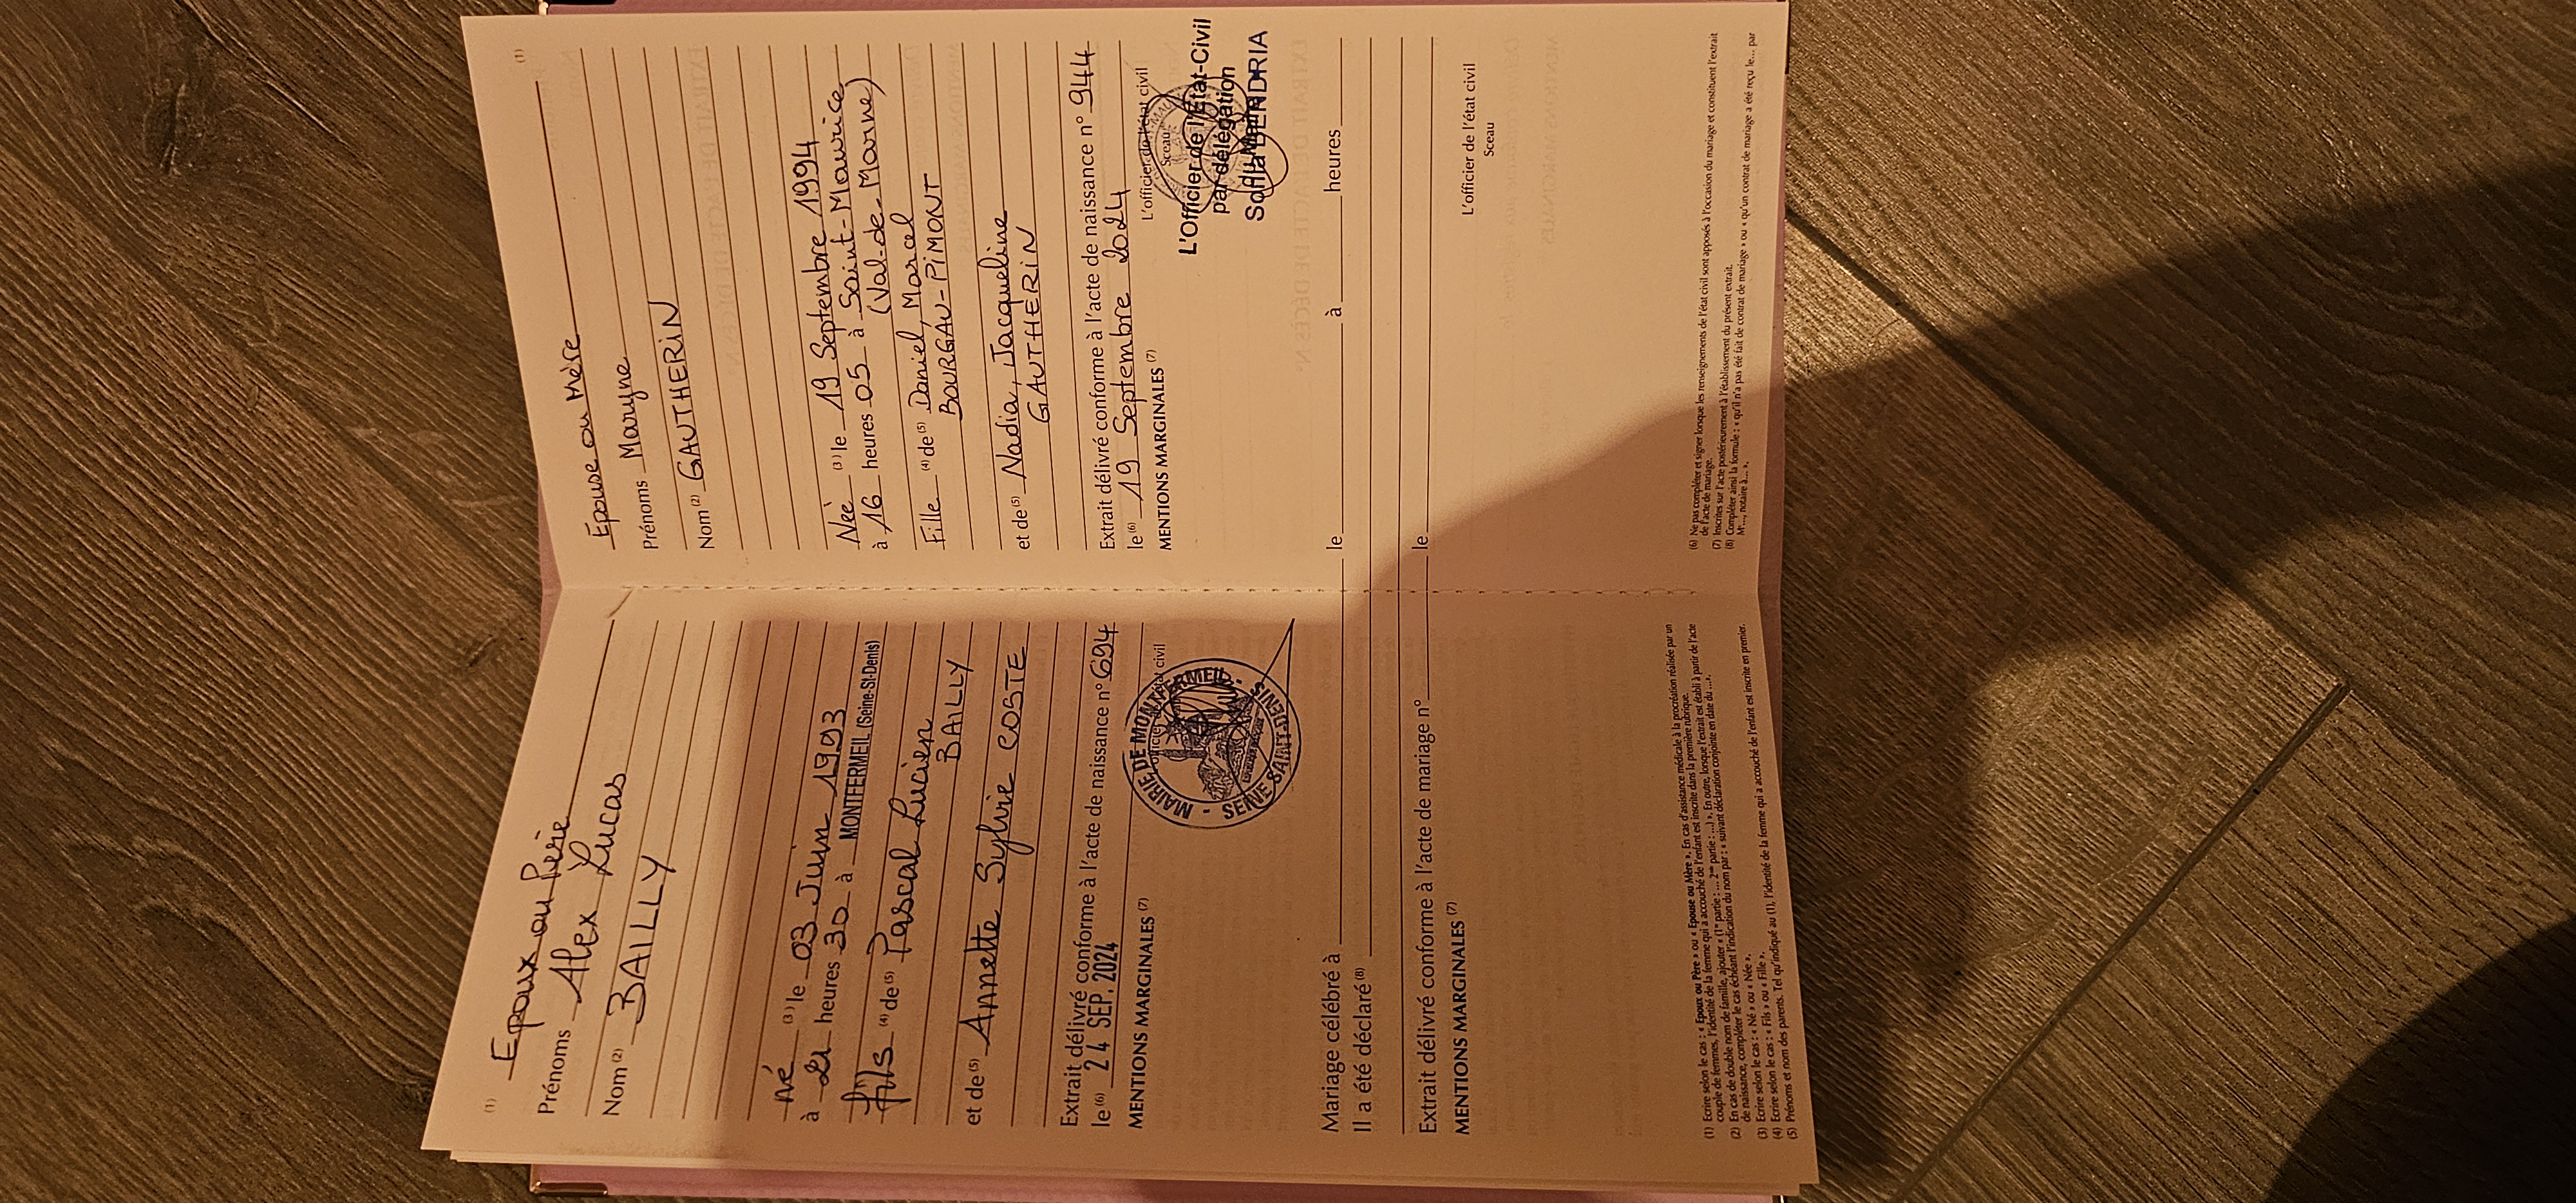 (1)
Epoux ou Père
Prénoms Alex Lucas
Nom (2) BAILLY
Né (3) le 03 Juin 1993
à 21 heures 30 à MONTFERMEIL (Seine-St-Denis)
fils (4) de (5) Pascal Lucien
BAILLY
et de (5) Annette Sylvie COSTE
Extrait délivré conforme à l'acte de naissance n° 694
le (6) 24 SEP. 2024
MENTIONS MARGINALES (7)
officier de l'état civil
MAIRIE DE MONTFERMEIL
SEINE SAINT-DENIS
(1)
Epouse ou Mère
Prénoms Maryne
Nom (2) GAUTHERIN
Née (3) le 19 Septembre 1994
à 16 heures 05 à Saint-Maurice
(Val-de-Marne)
Fille (4) de (5) Daniel, Marcel
BOURGAU-PIMONT
et de (5) Nadia, Jacqueline
GAUTHERIN
Extrait délivré conforme à l'acte de naissance n° 944
le (6) 19 Septembre 2024
MENTIONS MARGINALES (7)
L'officier de l'état civil
Sceau
L'Officier de l'État-Civil
par délégation
du Maire
Sonia BENDRIA
Mariage célébré à le à heures
Il a été déclaré (8)
Extrait délivré conforme à l'acte de mariage n° le
MENTIONS MARGINALES (7)
L'officier de l'état civil
Sceau
(1) Ecrire selon le cas : « Epoux ou Père » ou « Epouse ou Mère ». En cas d'assistance médicale à la procréation réalisée par un
couple de femmes, l'identité de la femme qui a accouché de l'enfant est inscrite dans la première rubrique.
(2) En cas de double nom de famille, ajouter « (1re partie : ... 2nde partie : ...) ». En outre, lorsque l'extrait est établi à partir de l'acte
de naissance, compléter le cas échéant l'indication du nom par : « suivant déclaration conjointe en date du ... ».
(3) Ecrire selon le cas : « Né » ou « Née ».
(4) Ecrire selon le cas : « Fils » ou « Fille ».
(5) Prénoms et nom des parents. Tel qu'indiqué au (1), l'identité de la femme qui a accouché de l'enfant est inscrite en premier.
(6) Ne pas compléter et signer lorsque les renseignements de l'état civil sont apposés à l'occasion du mariage et constituent l'extrait
de l'acte de mariage.
(7) Inscrites sur l'acte postérieurement à l'établissement du présent extrait.
(8) Compléter ainsi la formule : « qu'il n'a pas été fait de contrat de mariage » ou « qu'un contrat de mariage a été reçu le... par
Me..., notaire à... ».